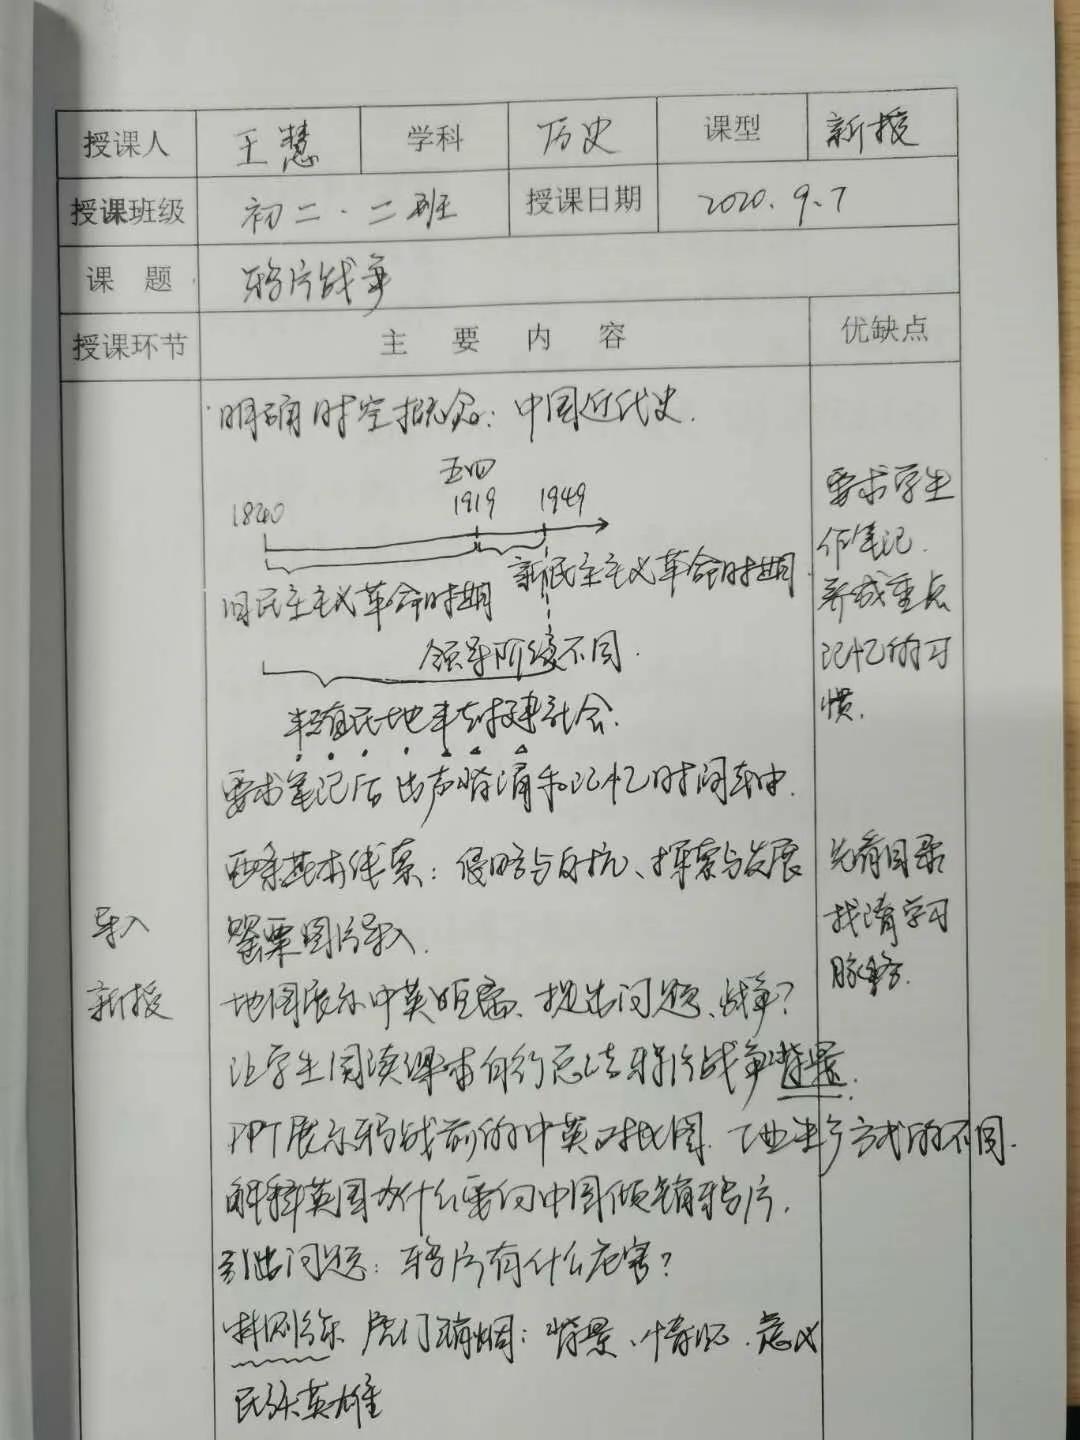 授课人 王慧 学科 历史 课型 新授
授课班级 初二.二班 授课日期 2020.9.7
课题 鸦片战争
授课环节 主要内容 优缺点
明确时空概念：中国近代史.
五四
1840 1919 1949
旧民主主义革命时期 新民主主义革命时期
领导阶级不同.
半殖民地半封建社会.
要求笔记后出声背诵和记忆时间轴.
两条基本线索：侵略与反抗、探索与发展
导入 罂粟图片导入.
新授 地图展示中英距离、提出问题、战争？
让学生阅读课本自行总结鸦片战争背景.
PPT展示鸦战前的中英对比图.工业生产方式的不同.
解释英国为什么要向中国倾销鸦片.
引出问题：鸦片有什么危害？
林则徐 虎门销烟：背景、情况.意义
民族英雄
要求学生
作笔记.
养成重点
记忆的习
惯.
先看目录
找清学习
脉络.